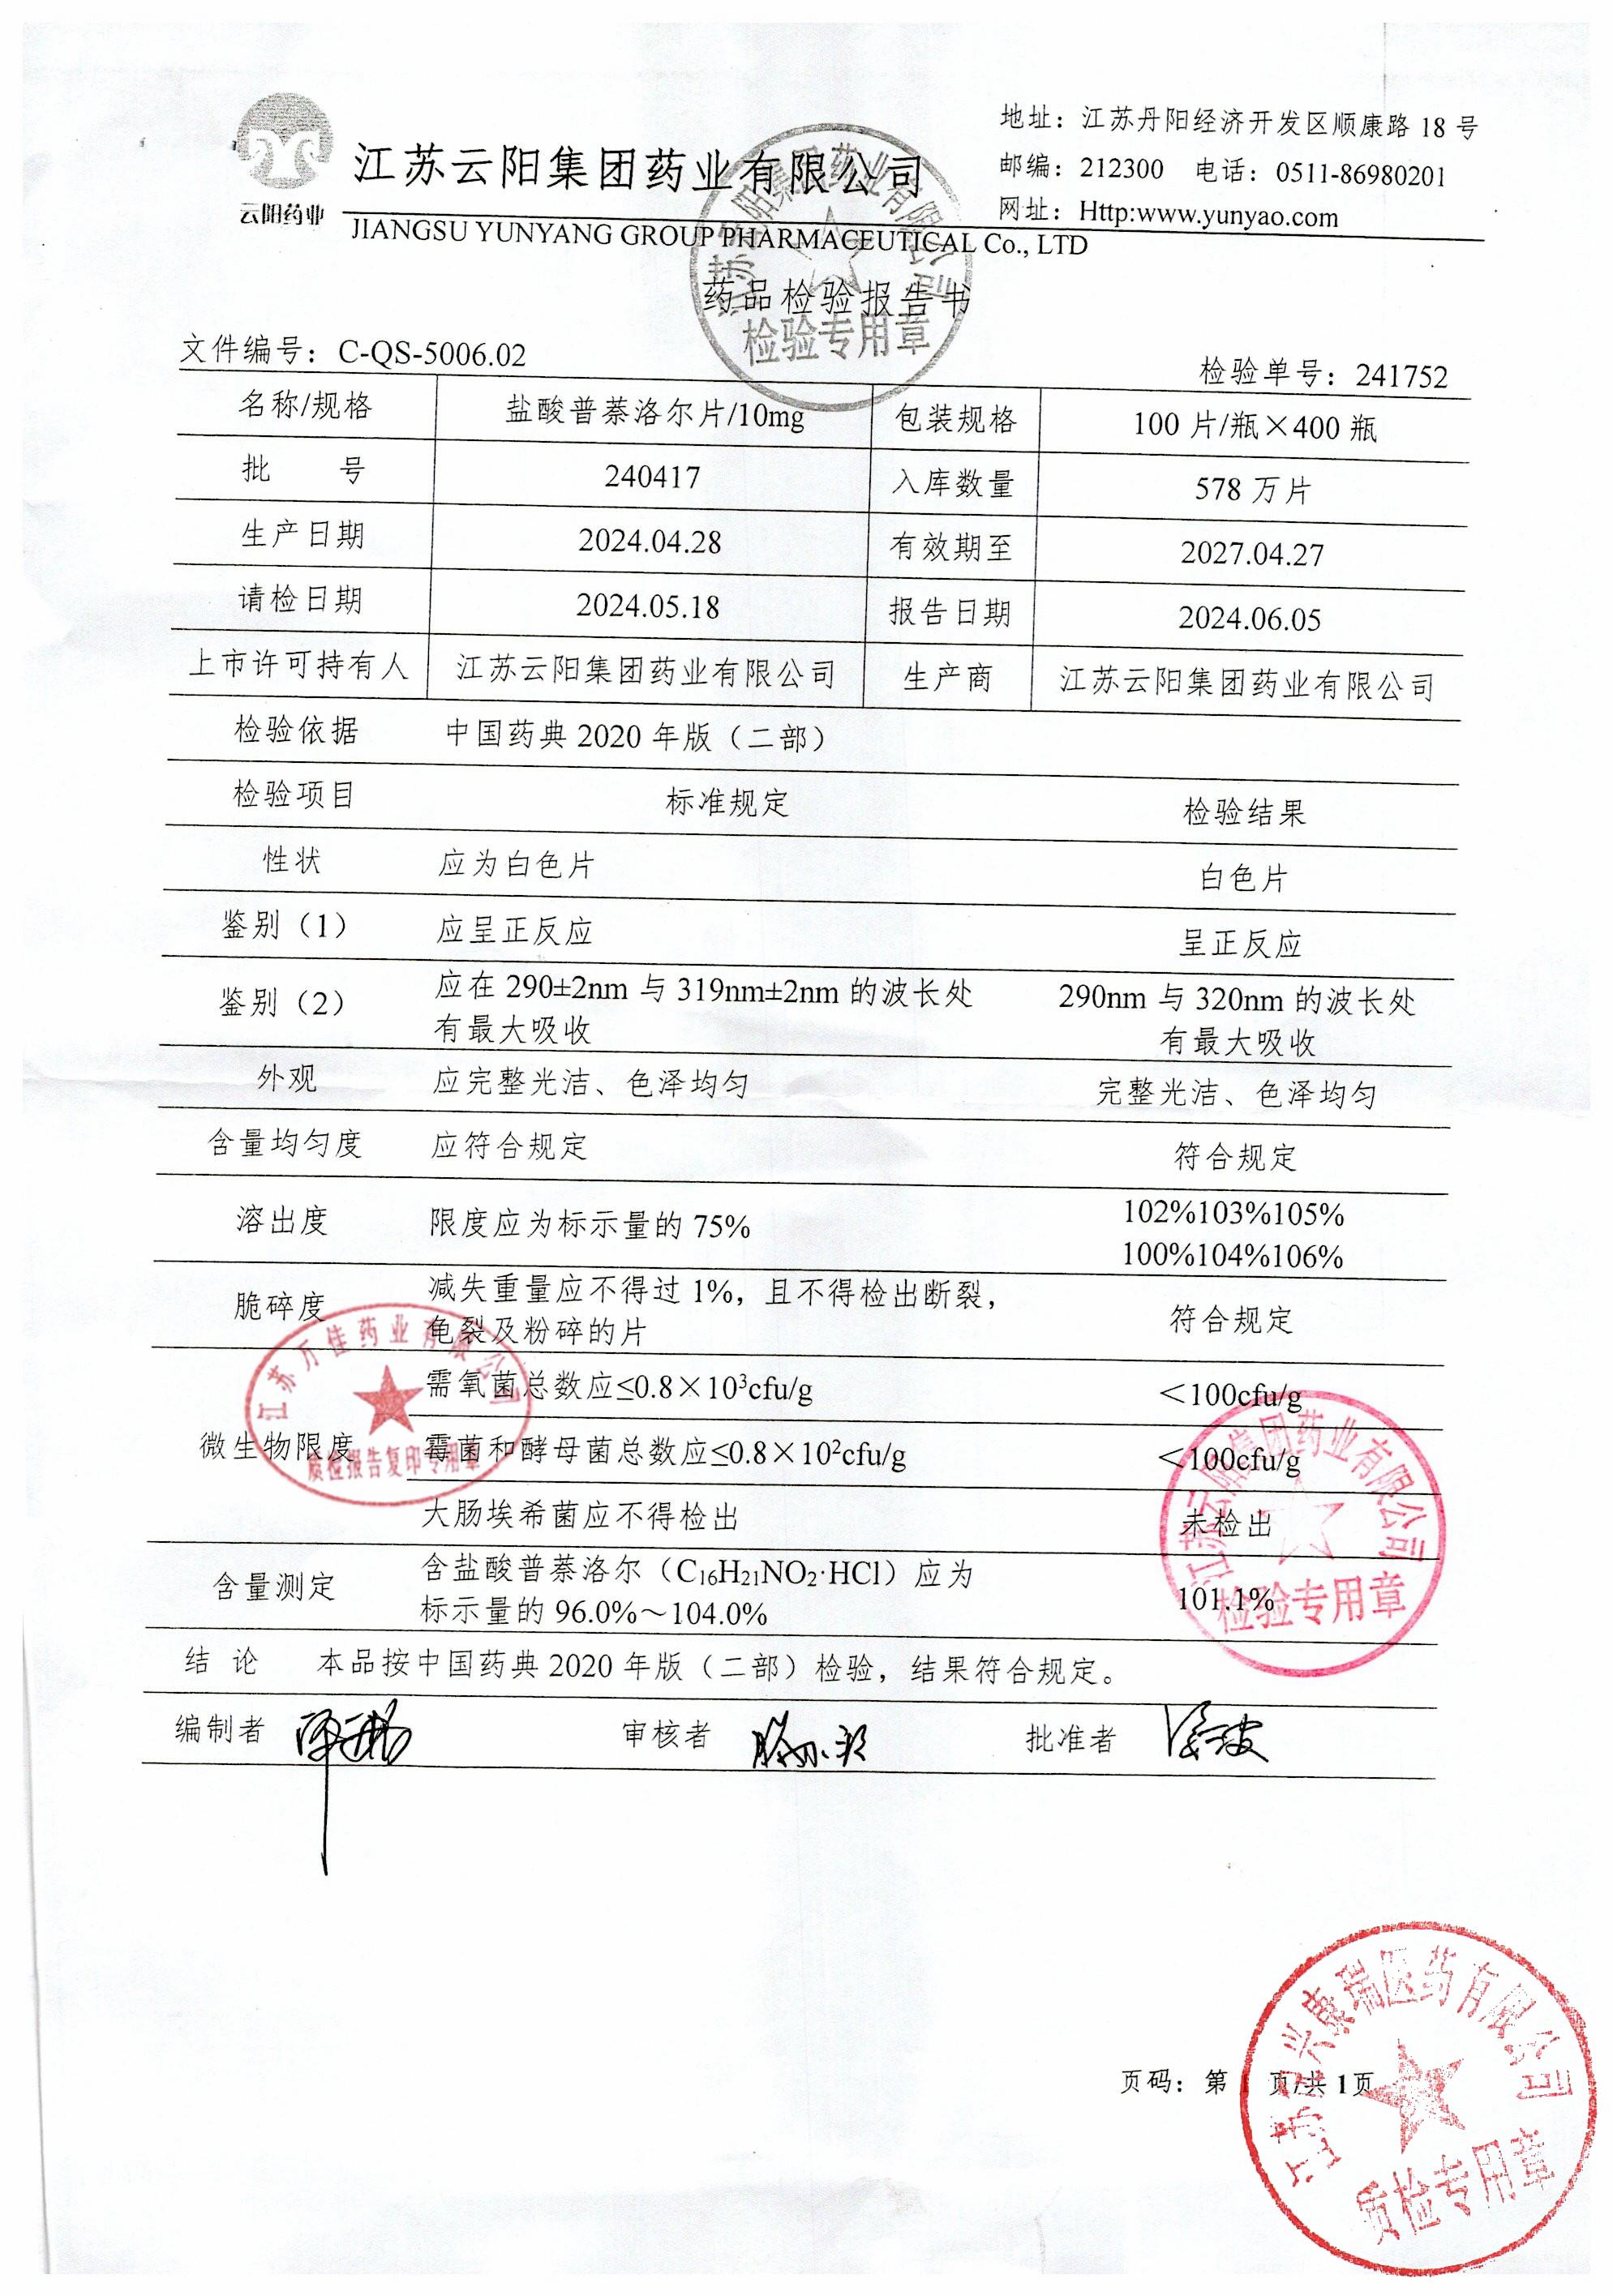 云阳药业
江苏云阳集团药业有限公司
JIANGSU YUNYANG GROUP PHARMACEUTICAL Co., LTD
地址：江苏丹阳经济开发区顺康路 18 号
邮编：212300 电话：0511-86980201
网址：Http:www.yunyao.com
药品检验报告书
江苏云阳集团药业有限公司
检验专用章
文件编号：C-QS-5006.02
检验单号：241752
名称/规格 盐酸普萘洛尔片/10mg 包装规格 100 片/瓶×400 瓶
批 号 240417 入库数量 578 万片
生产日期 2024.04.28 有效期至 2027.04.27
请检日期 2024.05.18 报告日期 2024.06.05
上市许可持有人 江苏云阳集团药业有限公司 生产商 江苏云阳集团药业有限公司
检验依据 中国药典 2020 年版（二部）
检验项目 标准规定 检验结果
性状 应为白色片 白色片
鉴别（1） 应呈正反应 呈正反应
鉴别（2） 应在 290±2nm 与 319nm±2nm 的波长处 290nm 与 320nm 的波长处
有最大吸收 有最大吸收
外观 应完整光洁、色泽均匀 完整光洁、色泽均匀
含量均匀度 应符合规定 符合规定
溶出度 限度应为标示量的 75% 102%103%105%
100%104%106%
脆碎度 减失重量应不得过 1%，且不得检出断裂， 符合规定
龟裂及粉碎的片
江苏万佳药业有限公司
质检报告复印专用章
微生物限度 需氧菌总数应≤0.8×10³cfu/g ＜100cfu/g
霉菌和酵母菌总数应≤0.8×10²cfu/g ＜100cfu/g
大肠埃希菌应不得检出 未检出
含量测定 含盐酸普萘洛尔（C₁₆H₂₁NO₂·HCl）应为 101.1%
标示量的 96.0%～104.0%
江苏云阳集团药业有限公司
检验专用章
结 论 本品按中国药典 2020 年版（二部）检验，结果符合规定。
编制者 审核者 批准者
页码：第 1 页/共 1页
质检专用章